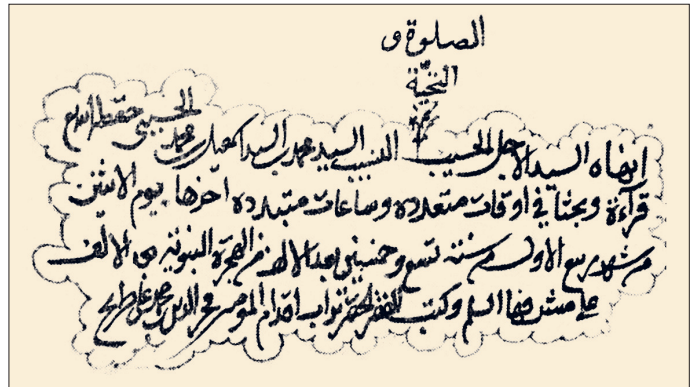 الصلوة و
التحيّة
انهاه السيد الاجل الحسيب النسيب السيد محمد بن السيد محمد الحسيني حفظه الله
قرآءة وبحثا في اوقات متعدده وساعات متبدده آخرها يوم الاثنين
من شهر ربيع الاول من سنة تسع وخمسين بعد الالف من الهجرة النبوية
على مشرفها السلم وكتب الفقير الحقير تراب اقدام المومنين فخر الدين محمد علي طريح